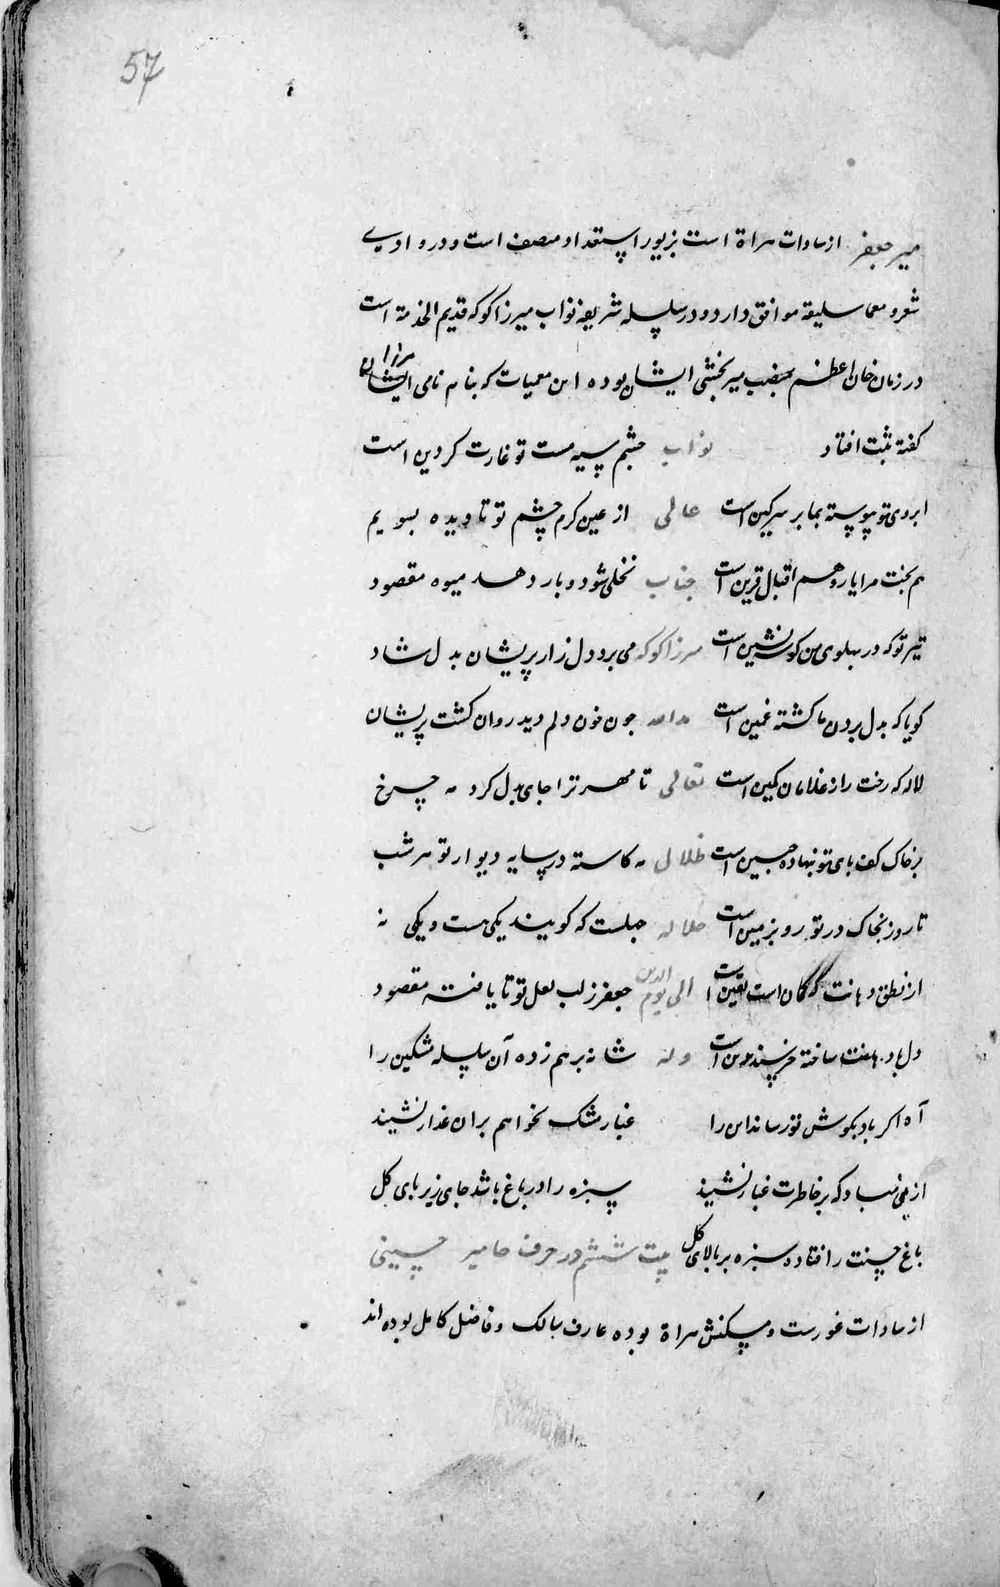 57
میر جعفر از سادات هراة است بزیور استعداد متصف است و در وادی
شعر و معما سلیقه موافق دارد و در سلسله شریفه نواب میرزا کوکه قدیم الخدمة است
در زمان خان اعظم بمنصب میر بخشی ایشان بوده این معمیات که بنام نامی ایشان
گفته ثبت افتاد نواب چشم سیه مست تو غارت گر دین است
ابروی تو پیوسته بما بر سر کین است عالی از عین کرم چشم تو تا دیده بسویم
هم بخت مرا یار و هم اقبال قرین است جناب نخلی شود و بار دهد میوه مقصود
تیر تو که در پهلوی من گوشه نشین است میرزا کوکه می برد دل زار پریشان بدل شاد
گویا که بدل بردن ما گشته غمین است مدالله چون خون دلم دید روان گشت پریشان
لاله که رخت را از غلامان کمین است تعالی تا مهر ترا جای بدل کرد مه چرخ
بر خاک کف پای تو بنهاده جبین است ظلال مه کاسته در سایه دیوار تو هر شب
تا روز بخاک در تو رو بزمین است جلاله جهلست که گویند یکی هست و یکی نه
از نطق دهانت که گمان است یقین است الی یوم الدین جعفر ز لب لعل تو تا یافته مقصود
دل باد ساخته خرسند است وله شانه بر هم زده آن سلسله مشکین را
آه اگر باد بگوش تو رساند این را غبار مشک نخواهم بران عذار نشیند
ازین مباد که بر خاطرت غبار نشیند سبزه را در باغ باشد جای زیر پای گل
باغ حسنت را فتاده سبزه بر بالای گل بیت ششم در حرف حا میر حسینی
از سادات غورست و مسکنش هراة بوده عارف سالک و فاضل کامل بوده اند